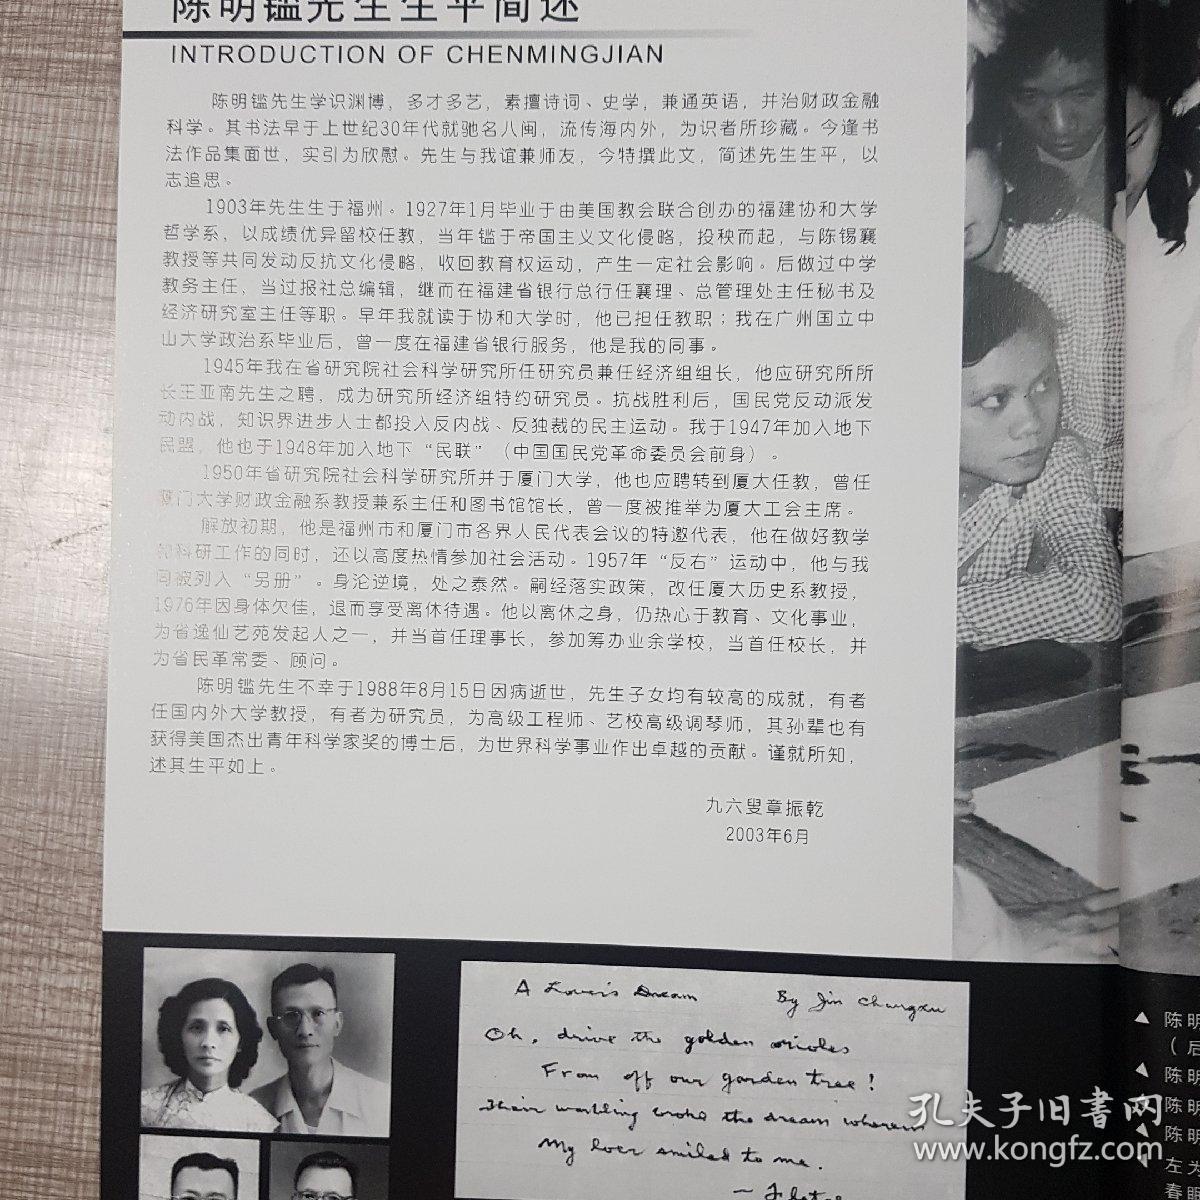 陈明鑑先生生平简述
INTRODUCTION OF CHENMINGJIAN
陈明鑑先生学识渊博，多才多艺，素擅诗词、史学，兼通英语，并治财政金融
科学。其书法早于上世纪30年代就驰名八闽，流传海内外，为识者所珍藏。今逢书
法作品集面世，实引为欣慰。先生与我谊兼师友，今特撰此文，简述先生生平，以
志追思。
1903年先生生于福州。1927年1月毕业于由美国教会联合创办的福建协和大学
哲学系，以成绩优异留校任教，当年鑑于帝国主义文化侵略，投秧而起，与陈锡襄
教授等共同发动反抗文化侵略，收回教育权运动，产生一定社会影响。后做过中学
教务主任，当过报社总编辑，继而在福建省银行总行任襄理、总管理处主任秘书及
经济研究室主任等职。早年我就读于协和大学时，他已担任教职；我在广州国立中
山大学政治系毕业后，曾一度在福建省银行服务，他是我的同事。
1945年我在省研究院社会科学研究所任研究员兼任经济组组长，他应研究所所
长王亚南先生之聘，成为研究所经济组特约研究员。抗战胜利后，国民党反动派发
动内战，知识界进步人士都投入反内战、反独裁的民主运动。我于1947年加入地下
民盟，他也于1948年加入地下“民联”（中国国民党革命委员会前身）。
1950年省研究院社会科学研究所并于厦门大学，他也应聘转到厦大任教，曾任
厦门大学财政金融系教授兼系主任和图书馆馆长，曾一度被推举为厦大工会主席。
解放初期，他是福州市和厦门市各界人民代表会议的特邀代表，他在做好教学
和科研工作的同时，还以高度热情参加社会活动。1957年“反右”运动中，他与我
同被列入“另册”。身沦逆境，处之泰然。嗣经落实政策，改任厦大历史系教授，
1976年因身体欠佳，退而享受离休待遇。他以离休之身，仍热心于教育、文化事业，
为省逸仙艺苑发起人之一，并当首任理事长，参加筹办业余学校，当首任校长，并
为省民革常委、顾问。
陈明鑑先生不幸于1988年8月15日因病逝世，先生子女均有较高的成就，有者
任国内外大学教授，有者为研究员，为高级工程师、艺校高级调琴师，其孙辈也有
获得美国杰出青年科学家奖的博士后，为世界科学事业作出卓越的贡献。谨就所知，
述其生平如上。
九六叟章振乾
2003年6月
A Lover's Dream By Jin Changxu
Oh, drive the golden orioles
From off our garden tree!
Their warbling broke the dream wherein
My lover smiled to me.
▲ 陈明
（后
▲ 陈明
陈明
陈明
左为
春明
孔夫子旧书网
www.kongfz.com